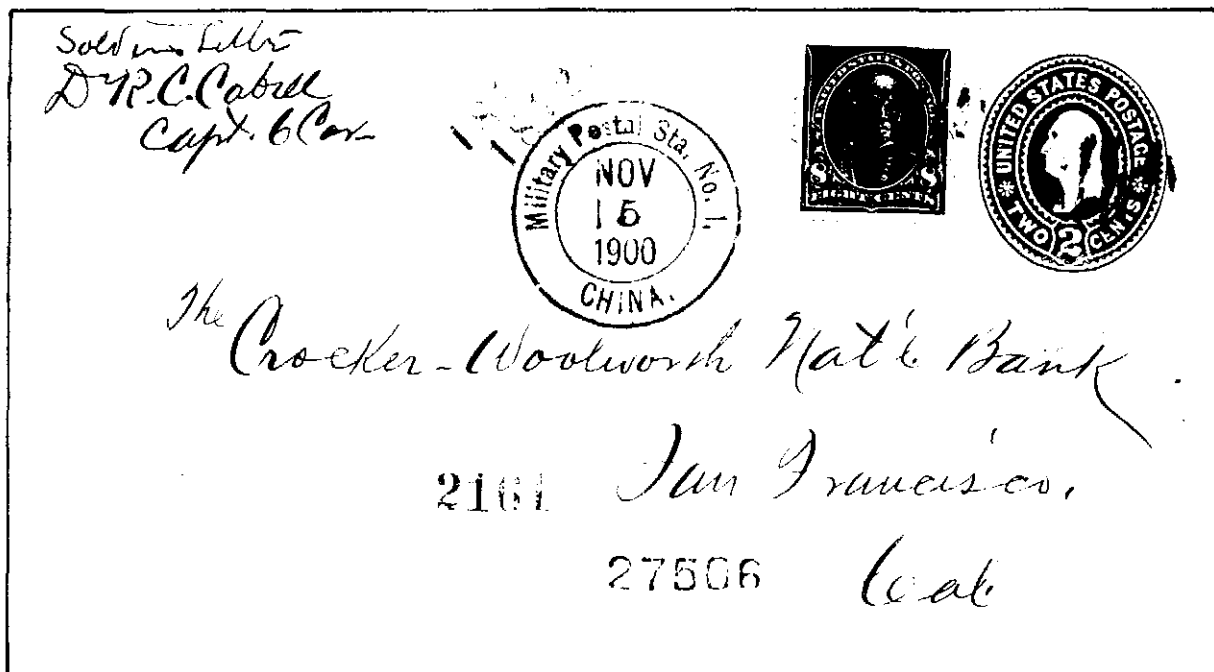 Soldiers Letter
De R.C. Cabell
Capt. 6 Cav
Military Postal Sta. No. 1,
NOV
15
1900
CHINA.
EIGHT CENTS
UNITED STATES POSTAGE
TWO 2 CENTS
The
Crocker-Woolworth Nat'l Bank
San Francisco,
2101
27506 Cal